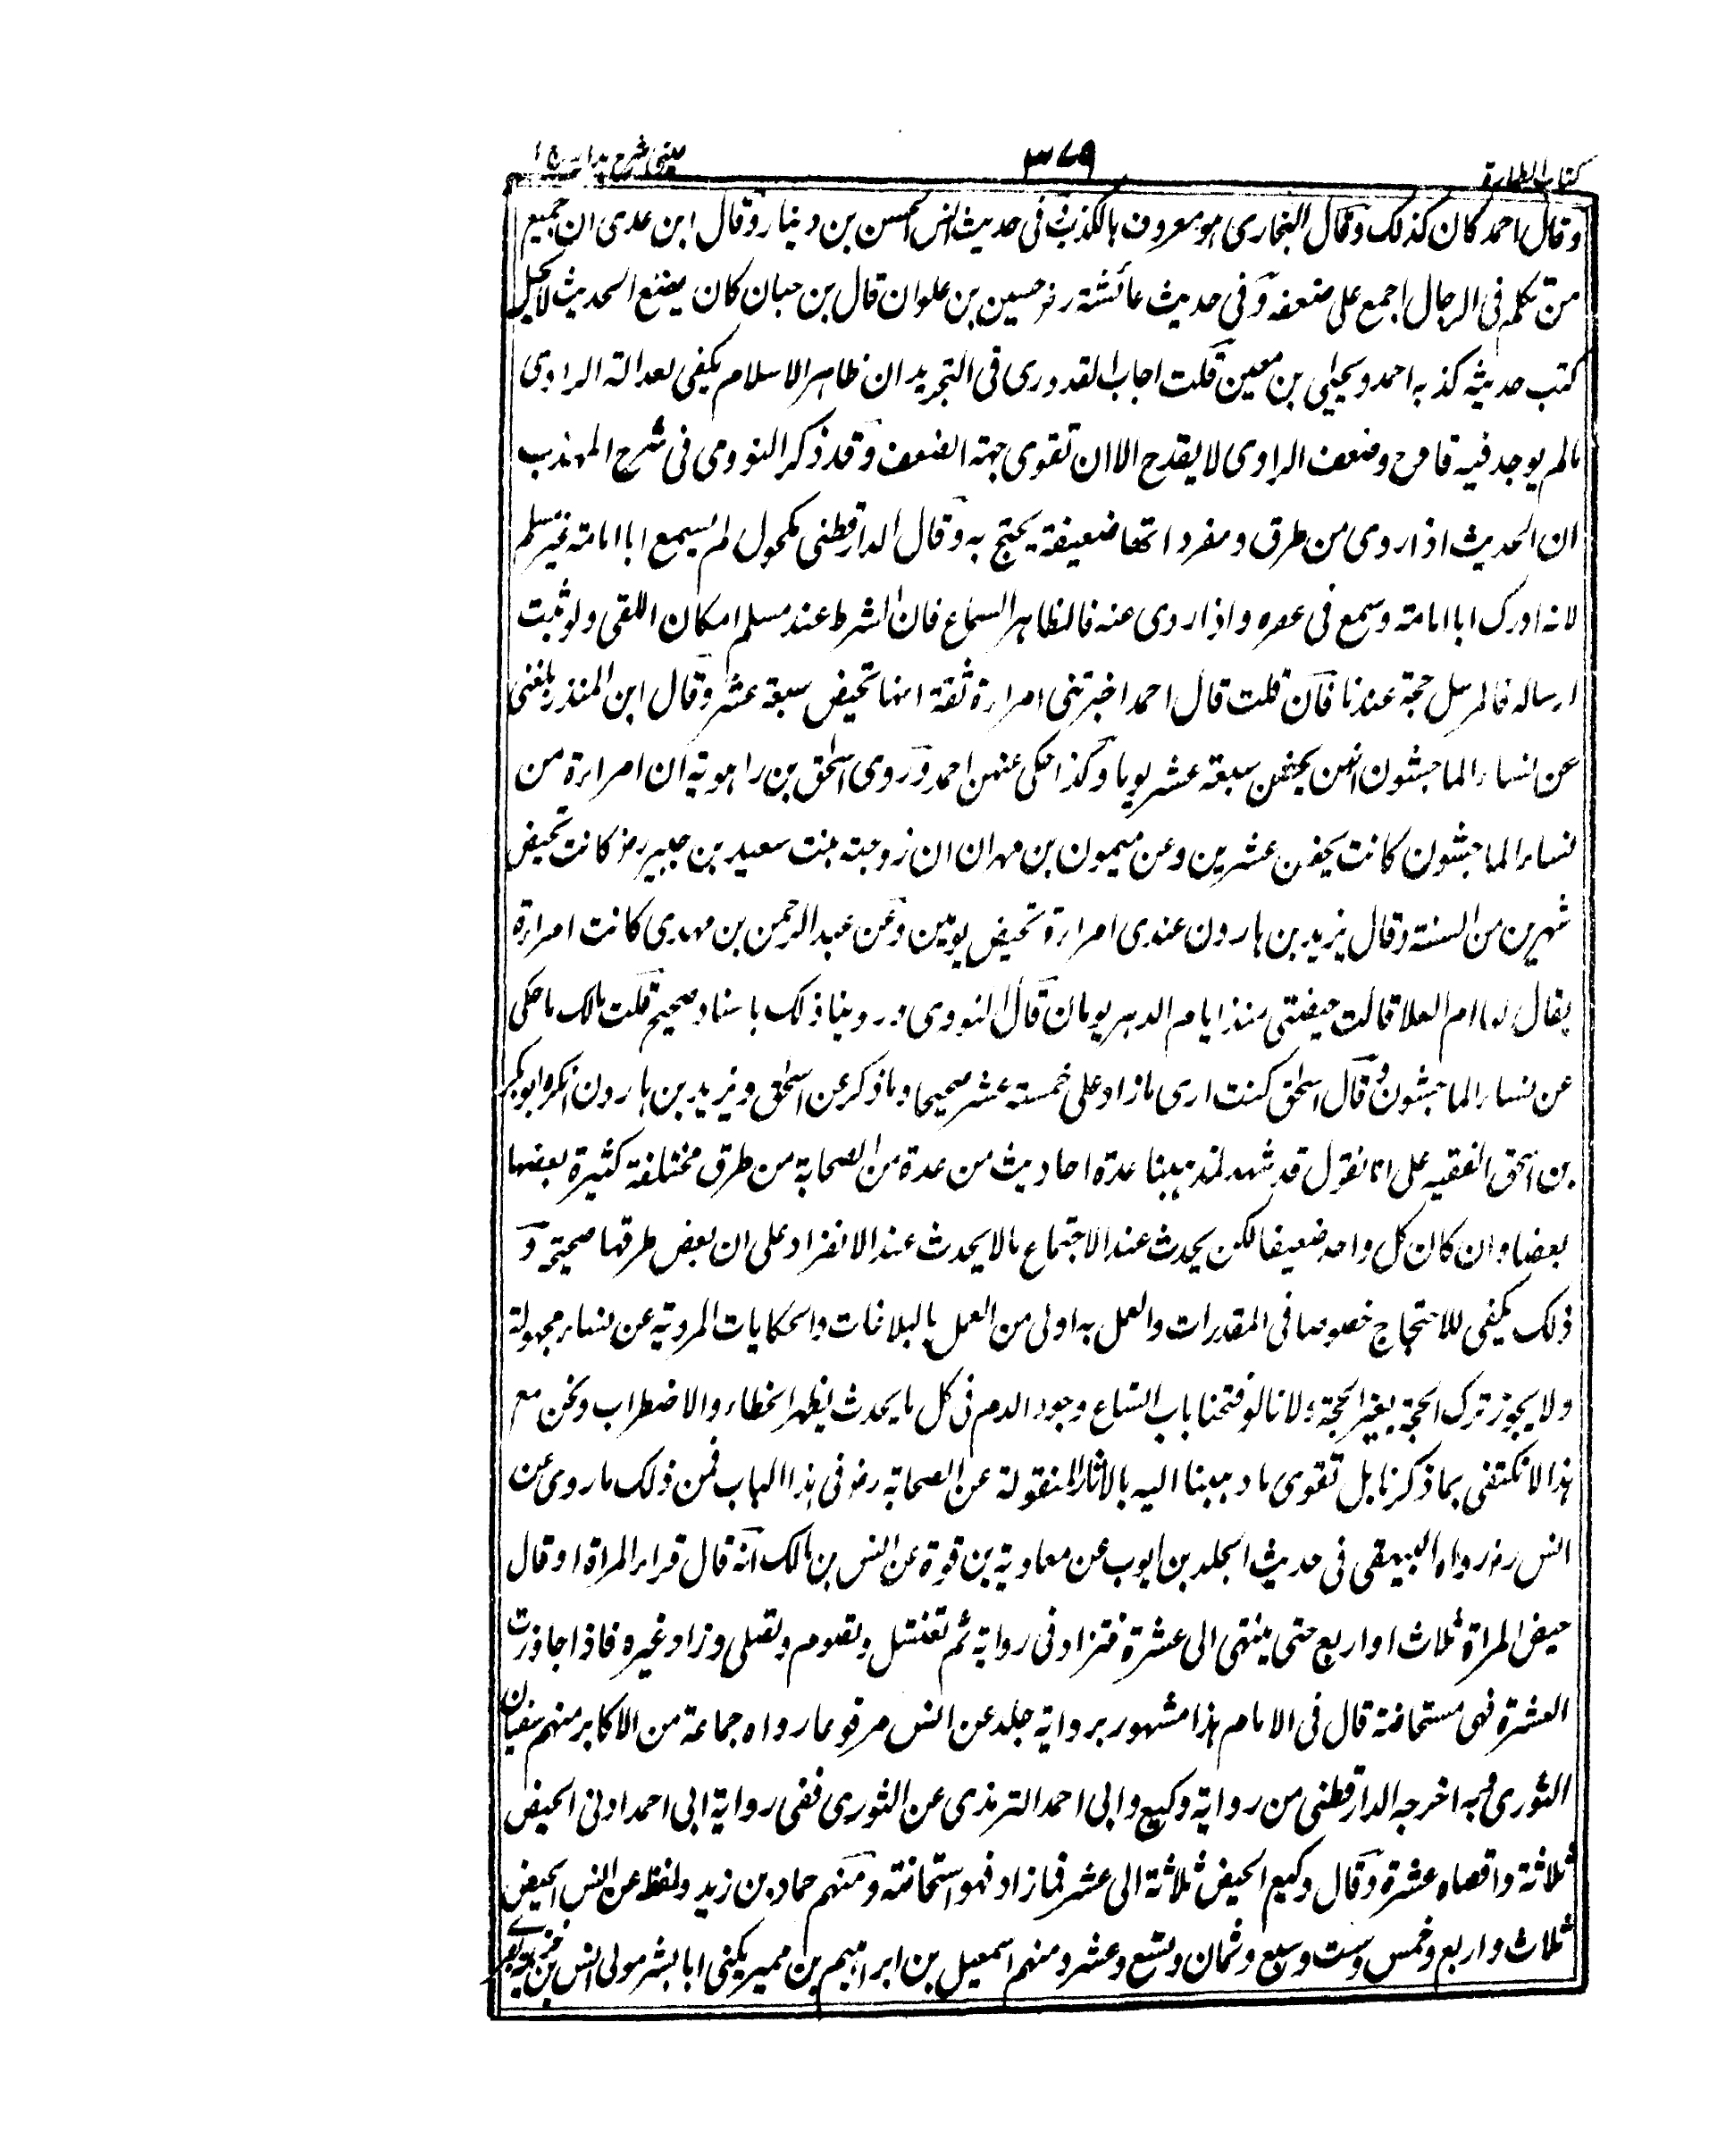 كتاب الطهارة ٣٧٩ عينى شرح هداية ج ١
وقال احمد كان كذلك وقال البخارى هو معروف بالكذب فى حديث انس الحسن بن دينار وقال ابن عدى ان جميع
من تكلم فى الرجال اجمع على ضعفه وفى حديث عائشة رض حسين بن علوان قال بن حبان كان يضع الحديث لا يحل
كتب حديثه كذبه احمد ويحيى بن معين قلت اجاب القدورى فى التجريد ان ظاهر الاسلام يكفى لعدالة الراوى
مالم يوجد فيه قادح وضعف الراوى لا يقدح الا ان تقوى جهة الضعف وقد ذكر النووى فى شرح المهذب
ان الحديث اذا روى من طرق ومفرداتها ضعيفة يحتج به وقال الدارقطنى مكحول لم يسمع ابا امامة غير مسلم
لانه ادرك ابا امامة وسمع فى عصره واذا روى عنه فالظاهر السماع فان الشرط عند مسلم امكان اللقى ولو ثبت
ارساله فالمرسل حجة عندنا فان قلت قال احمد اخبرتنى امراءة ثقة انها تحيض سبعة عشر وقال ابن المنذر بلغنى
عن نساء الماجشون انهن يحضن سبعة عشر يوما وكذا حكى عنهن احمد وروى اسحق بن راهوية ان امراءة من
نساء الماجشون كانت يحضن عشرين وعن ميمون بن مهران ان زوجته بنت سعيد بن جبير رض كانت تحيض
شهرين من السنة وقال يزيد بن هارون عندى امراءة تحيض يومين وعن عبد الرحمن بن مهدى كانت امراءة
يقال لها ام العلا قالت حيضتى منذ ايام الدهر يومان قال النووى وروينا ذلك باسناد صحيح قلت مالك ما حكى
عن نساء الماجشون وقال اسحق كنت ارى ما زاد على خمسة عشر صحيحا وما ذكر عن اسحق ويزيد بن هارون انكره ابو بكر
بن اسحق الفقيه على انا نقول قد شهد لمذهبنا عدة احاديث من عدة من الصحابة من طرق مختلفة كثيرة بعضها
بعضا وان كان كل واحد ضعيفا لكن يحدث عند الاجتماع مالا يحدث عند الانفراد على ان بعض طرقها صحيحة و
ذلك يكفى للاحتجاج خصوصا فى المقدرات والعمل به اولى من العمل بالبلاغات والحكايات المروية عن نساء مجهولة
ولا يجوز ترك الحجة بغير الحجة ولانا لو فتحنا باب اتساع وجود الدم فى كل ما يحدث يظهر الخطاء والاضطراب ونحن مع
هذا لا نكتفى بما ذكرنا بل تقوى ما ذهبنا اليه بالاثار المنقولة عن الصحابة رض فى هذا الباب فمن ذلك ما روى عن
انس رض رواه البيهقى فى حديث الجلد بن ايوب عن معاوية بن قرة عن انس بن مالك انه قال قراء المراة او قال
حيض المراة ثلاث او اربع حتى ينتهى الى عشرة فتزاد فى رواية ثم تغتسل وتصوم وتصلى وزاد غيره فاذا جاوزت
العشرة فهى مستحاضة قال فى الامام هذا مشهور برواية جلد عن انس مرفوعا رواه جماعة من الاكابر منهم سفيان
الثورى اخرجه الدارقطنى من رواية وكيع وابى احمد الترمذى عن الثورى ففى رواية ابى احمد ادنى الحيض
ثلاثة واقصاه عشرة وقال وكيع الحيض ثلاثة الى عشر فما زاد فهو استحاضة ومنهم حماد بن زيد ولفظه عن انس الحيض
ثلاث واربع وخمس وست وسبع وثمان وتسع وعشر ومنهم اسمعيل بن ابراهيم بن ميمر يكنى ابا بشر مولى انس بن خزيمة